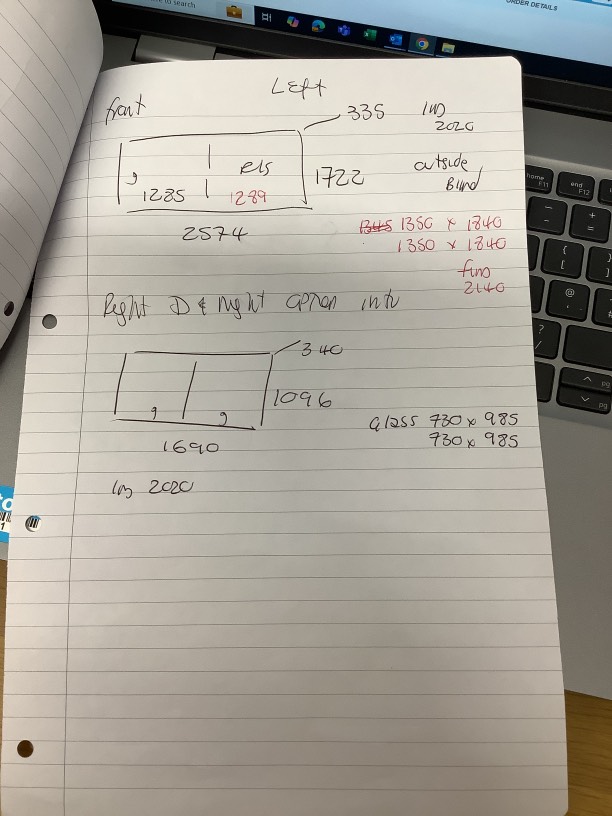 Left
front
335
IW
2020
1285
RLS
1289
1722
outside
Blind
2574
1350 x 1840
1350 x 1840
2140
Right
340
1096
1690
Glass 730 x 985
730 x 985
2020
to search
ORDER DETAILS
home
F11
end
F12